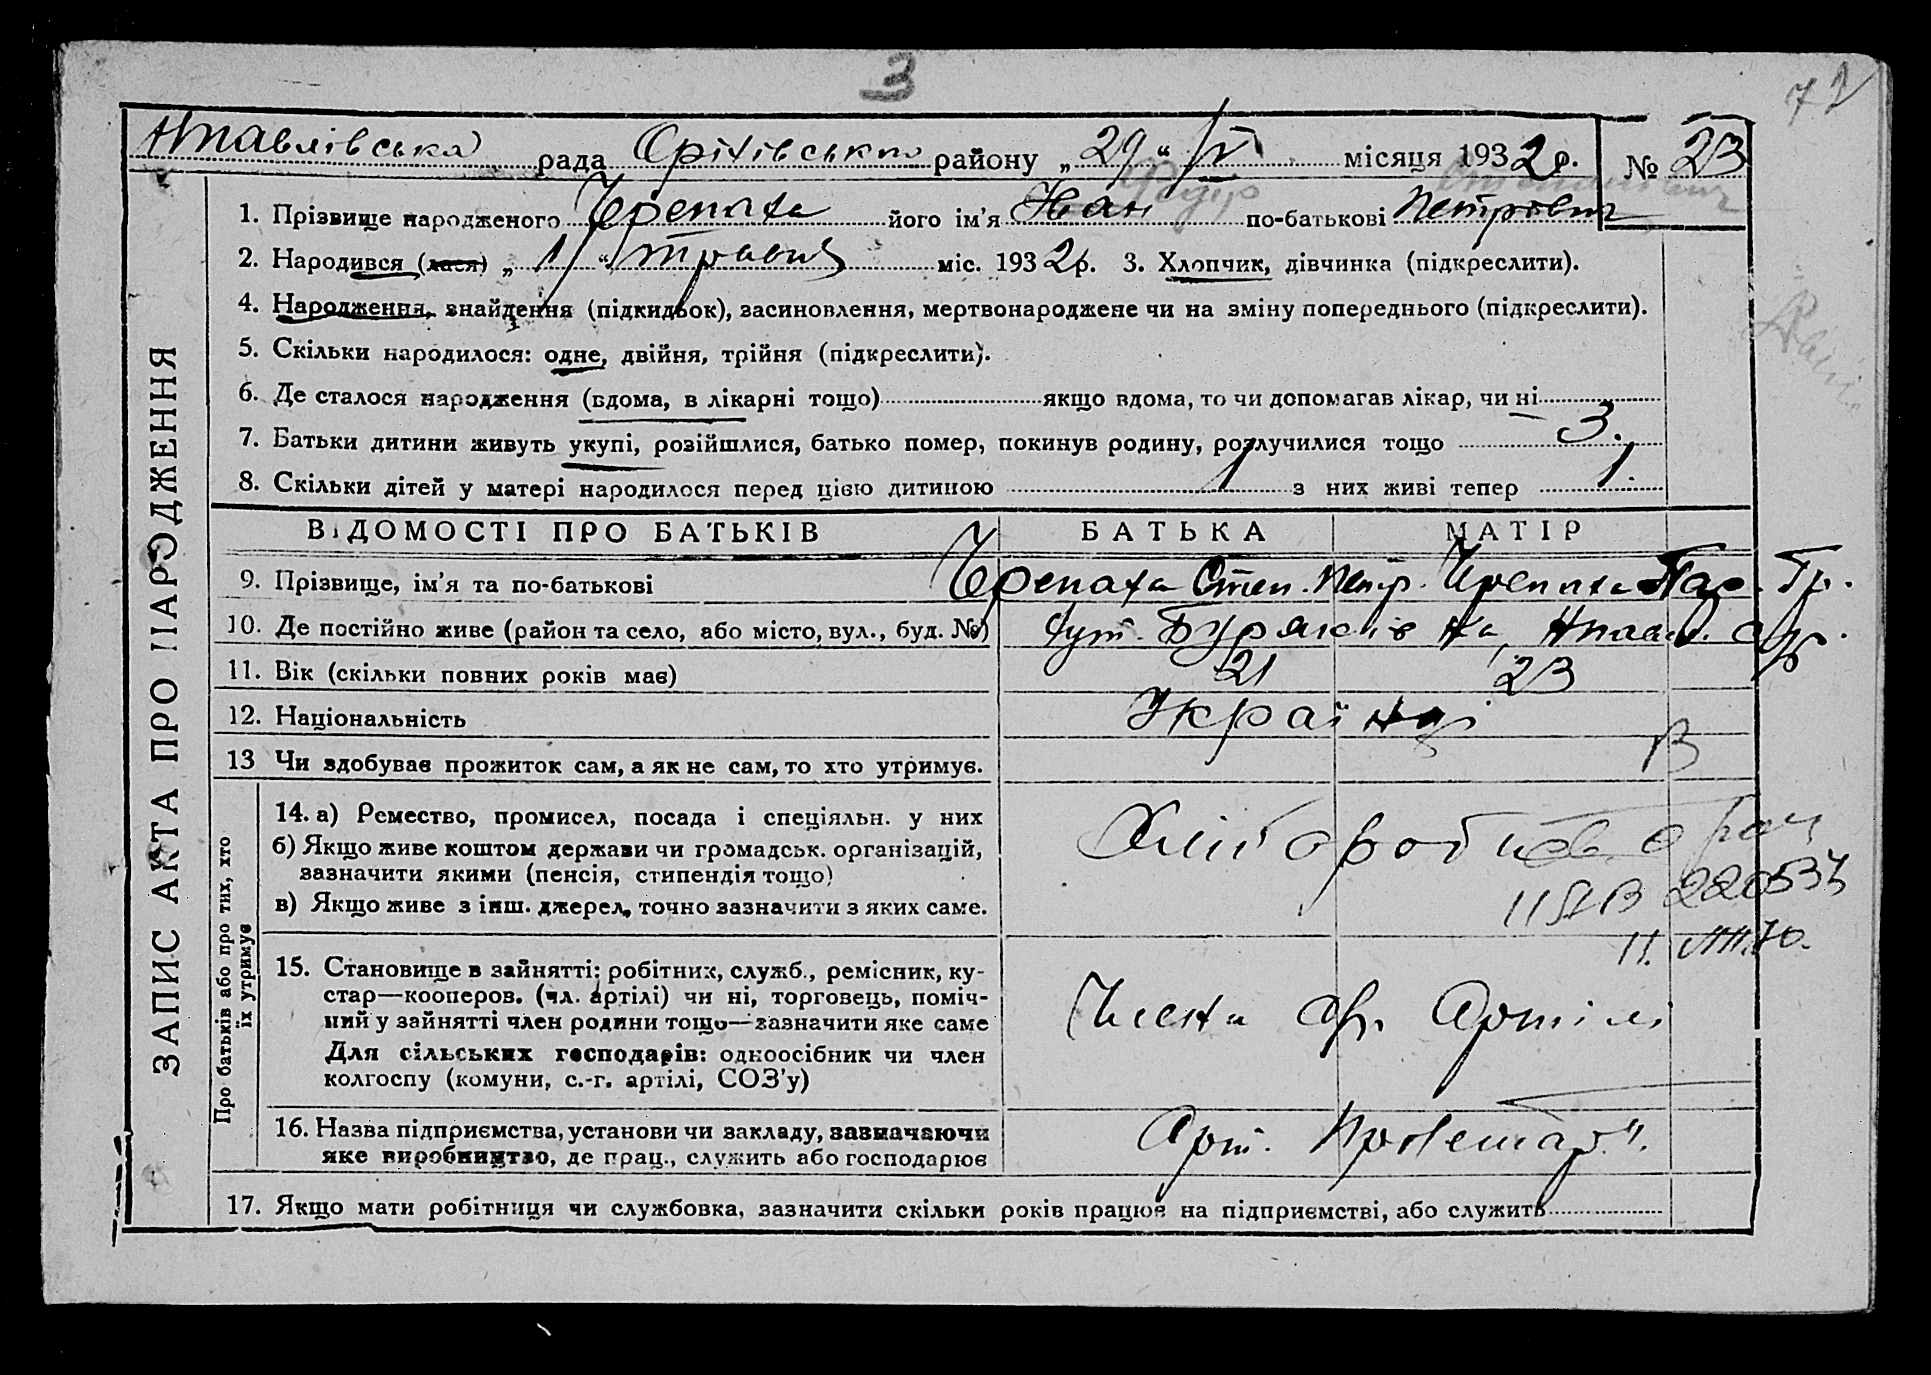 3
72
Нпавлівська рада Оріхівського району „29“ IV місяця 1932 р. № 23
1. Прізвище народженого Черепаха його ім'я Иван по-батькові Петрович
2. Народився (лася) „1“ травня міс. 1932 р. 3. Хлопчик, дівчинка (підкреслити).
4. Народження, знайдення (підкидьок), засиновлення, мертвонароджене чи на зміну попереднього (підкреслити).
5. Скільки народилося: одне, двійня, трійня (підкреслити).
6. Де сталося народження (вдома, в лікарні тощо) якщо вдома, то чи допомагав лікар, чи ні
7. Батьки дитини живуть укупі, розійшлися, батько помер, покинув родину, розлучилися тощо 3.
8. Скільки дітей у матері народилося перед цією дитиною 1 з них живі тепер 1.
ЗАПИС АКТА ПРО НАРОДЖЕННЯ
ВІДОМОСТІ ПРО БАТЬКІВ БАТЬКА МАТІР
9. Прізвище, ім'я та по-батькові Черепаха Степ. Петр. Черепаха Пар. Гр.
10. Де постійно живе (район та село, або місто, вул., буд. №) Хут. Буряківка, Нпавл. с/р.
11. Вік (скільки повних років має) 21 23
12. Національність Українці
13 Чи здобуває прожиток сам, а як не сам, то хто утримує. В
Про батьків або про тих, хто
їх утримує
14. а) Ремество, промисел, посада і спеціяльн. у них
б) Якщо живе коштом держави чи громадськ. організацій,
зазначити якими (пенсія, стипендія тощо)
в) Якщо живе з інш. джерел, точно зазначити з яких саме.
220537
15. Становище в зайнятті: робітник, служб., ремісник, ку-
стар—кооперов. (чл. артілі) чи ні, торговець, поміч-
ний у зайнятті член родини тощо—зазначити яке саме
Для сільських господарів: одноосібник чи член
колгоспу (комуни, с.-г. артілі, СОЗ'у)
Члени с/г. Артілі
16. Назва підприємства, установи чи закладу, зазначаючи
яке виробництво, де прац., служить або господарює
Арт. Пролетар".
17. Якщо мати робітниця чи службовка, зазначити скільки років працює на підприємстві, або служить